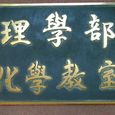 理學部
化學教室